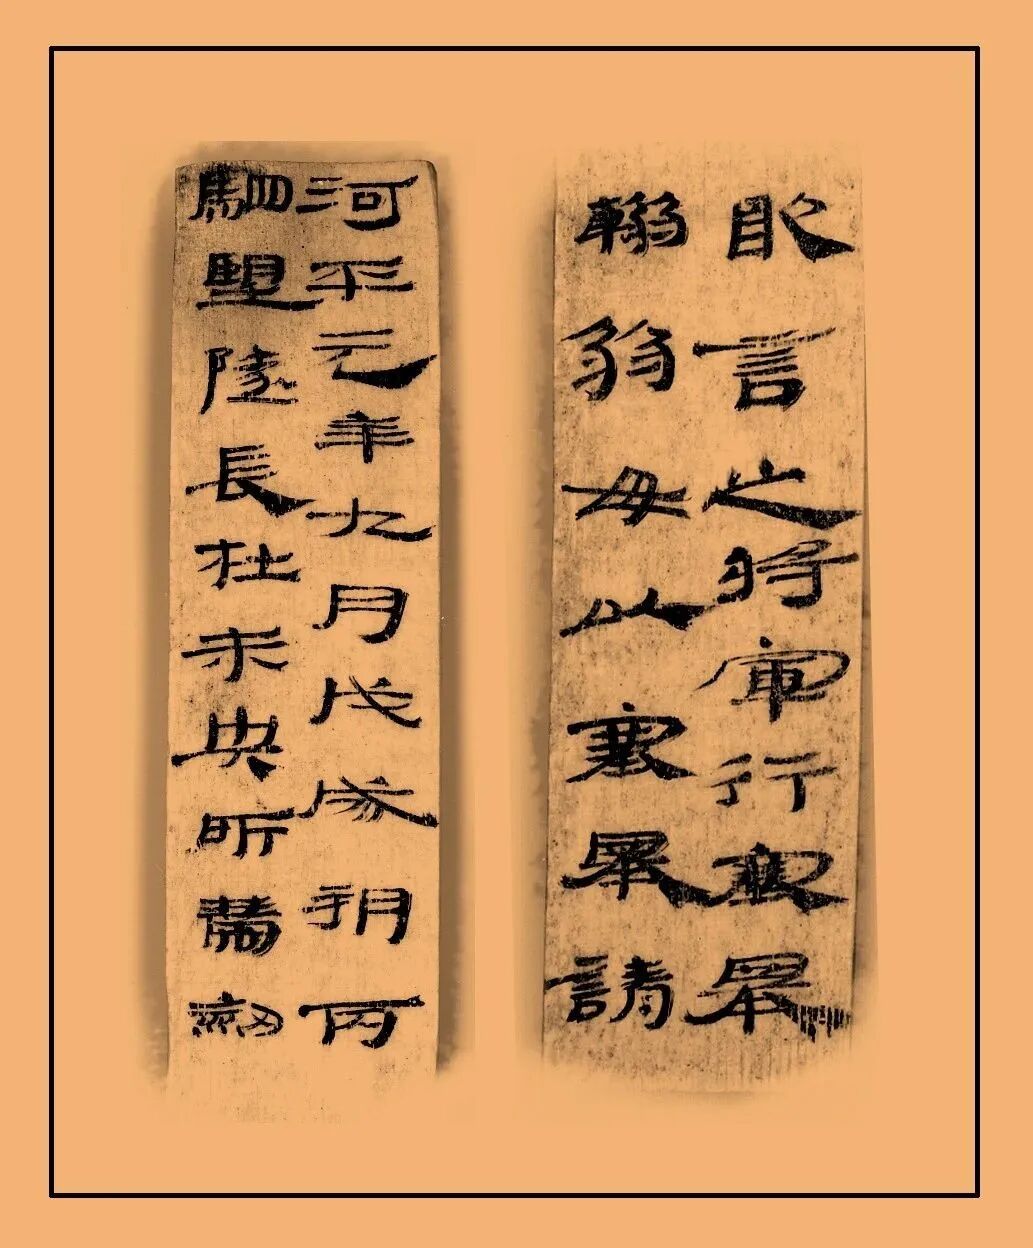 河平元年九月戊戌朔丙
駟望隧長杜未央所帶劍
敢言之將軍行塞舉
弱毋以塞舉請